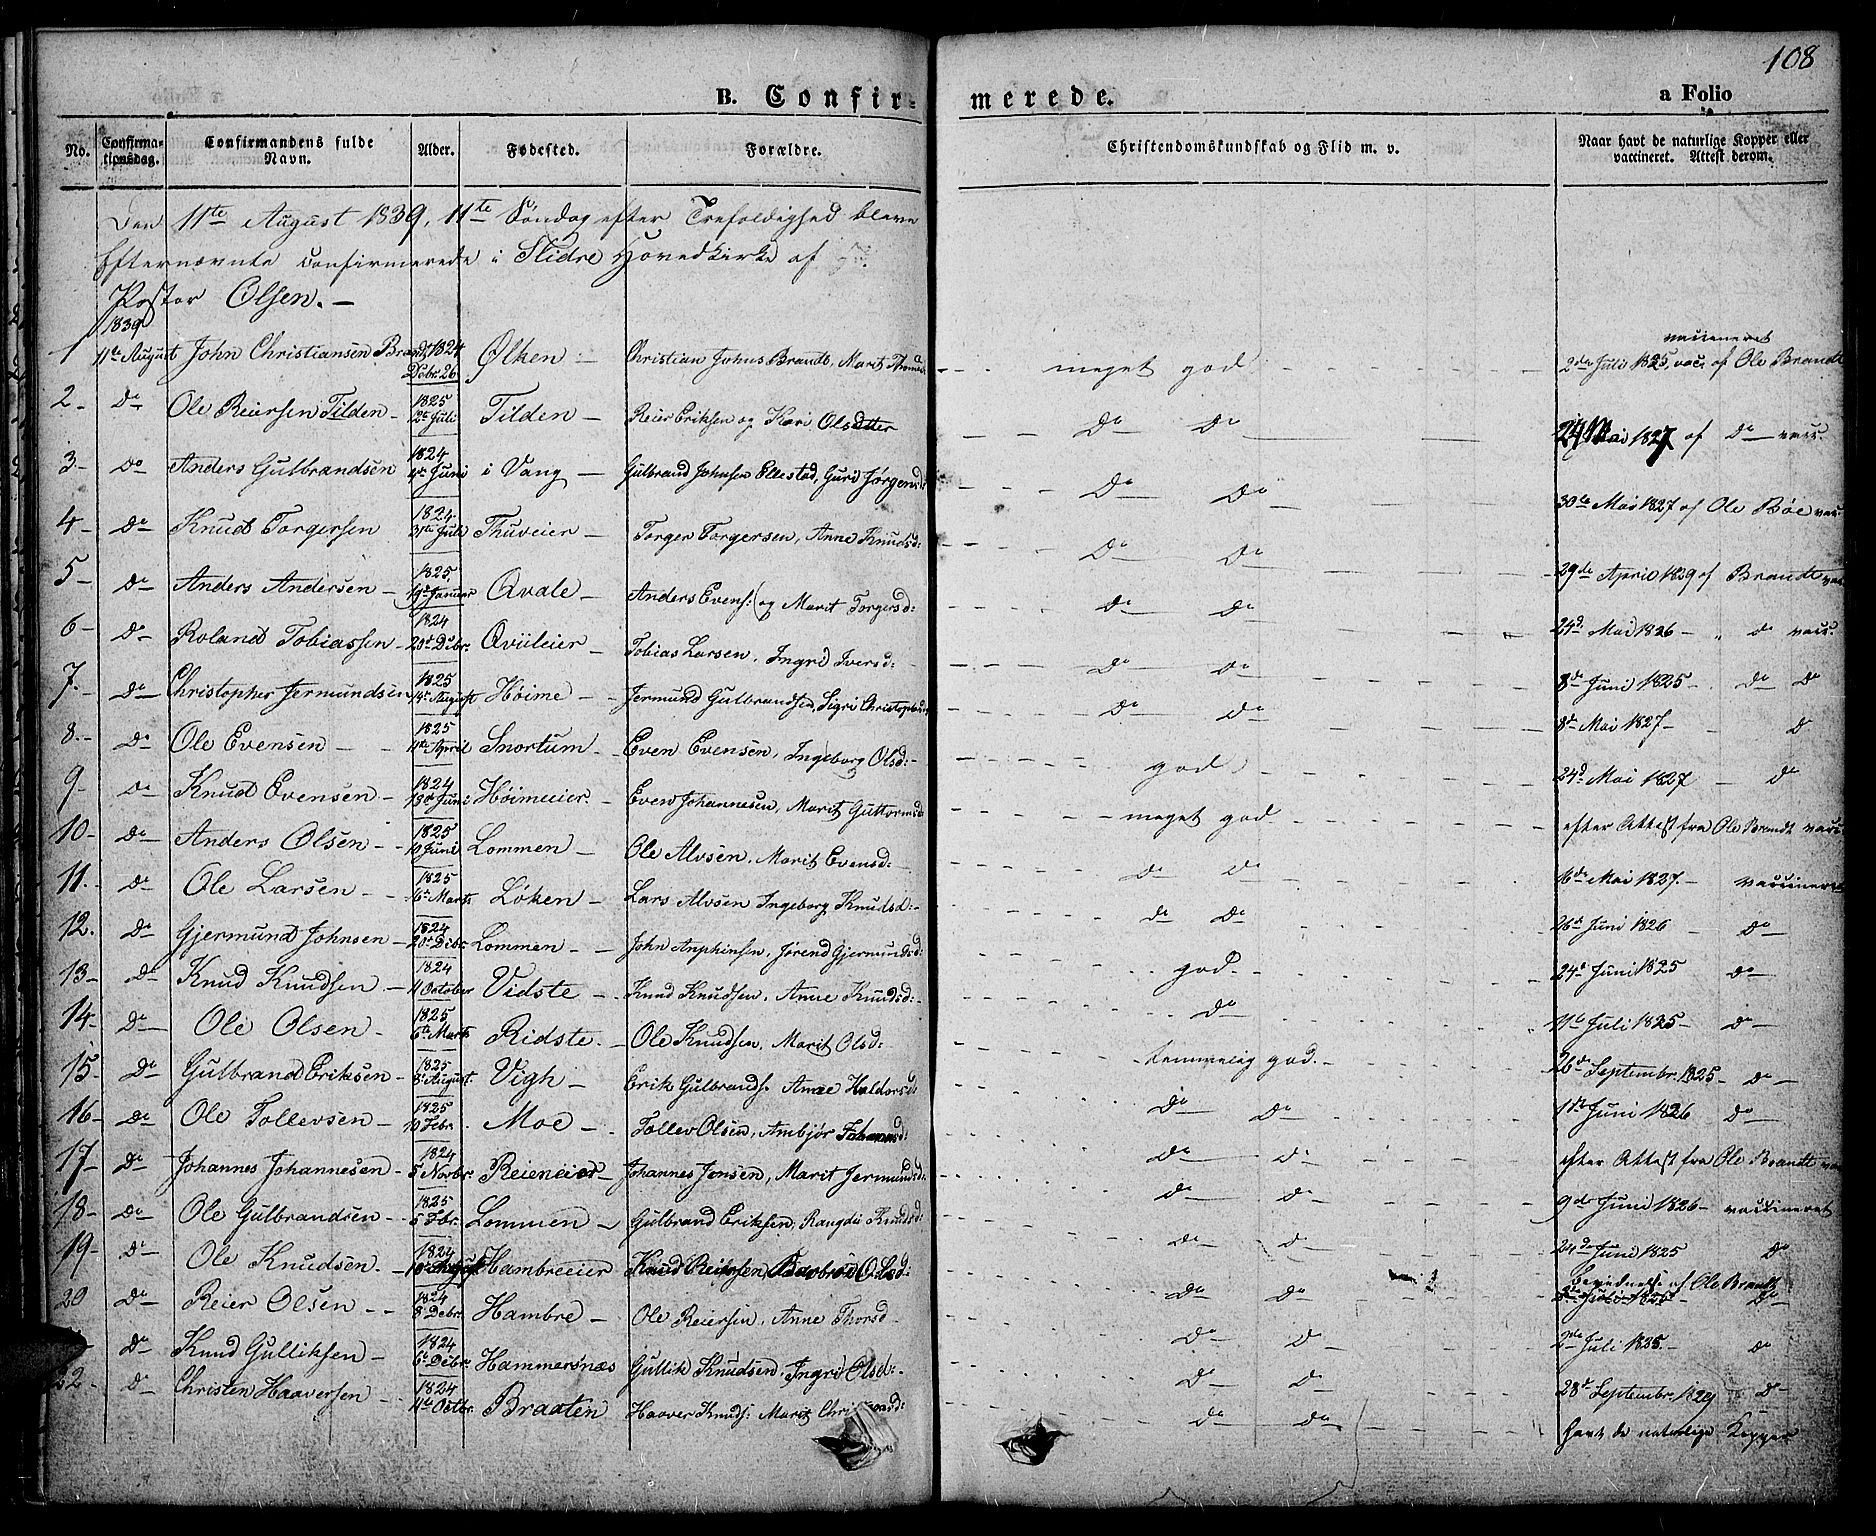 108
B. Confir- merede.
a Folio
No. Confirma-tionsdag. Confirmandens fulde Navn. Alder. Fødested. Forældre. Christendomskundskab og Flid m. v. Naar havt de naturlige Kopper eller vaccineret. Attest derom.
Den 11te August 1839, 11te Søndag efter Trefoldighed bleve
Efternævnte confirmerede i Slidre Hovedkirke af
Pastor Olsen. —
1839
1 11te August John Christiansen Brandt 1824 Debr. 26 Ølken — Christian Johns Brandt, Marit meget god vaccineret 2den Juli 1825, vacc. af Ole Brandt
2 - Do Ole Reiersen Tilden - 1825 Juli Tilden — Reier Eriksen og Kari Olsdatter Do Do 24 Mai 1827 af Do vacc.
3 - Do Anders Gulbrandsen 1824 Juni i Vang — Gulbrand Johnsen Ellestad, Guri Jørgensd: Do Do 30te Mai 1827 af Ole Bøe vacc.
4 - Do Knud Torgersen 1824 31te Juli Thuveier — Torger Torgersen, Anne Knudsd: Do Do 29de April 1829 af Brandt vacc.
5 - Do Anders Andersen - 1825 19de Januar Qvale — Anders Evens: og Marit Torgersd: Do Do 24d. Mai 1826 - " do vacc.
6 - Do Roland Tobiassen - 1824 20de Debr. Qviileier — Tobias Larsen, Ingrid Iversd: Do Do 8de Juni 1825 - Do Do
7. - Do Christopher Jermundsen 1825 14de August Høime — Jermund Gulbrandsen, Sigri Christophersd: Do Do 8de Mai 1827 - D
8. - Do Ole Evensen - 1825 11te April Snortum - Even Evensen, Ingeborg Olsd: - god 24d Mai 1827 - Do
9 - Do Knud Evensen - 1824 13de Juni Høimeier. - Even Johannesen, Marit Guttormsd: meget god efter Attest fra Ole Brandt vacc.
10 - Do Anders Olsen - 1825 10 Juni Lommen — Ole Alvsen, Marit Evensd: Do Do 6de Mai 1827. - vaccineret
11. - Do Ole Larsen - 1825 6te Marts Løken — Lars Alvsen Ingeborg Knudsd: - Do Do 26de Juni 1826 Do
12. Do Gjermund Johnsen - 1824 20de Debr. Lommen - John Anphinsen, Jørend Gjermundsd: god. 24d Juni 1825 Do
13 - Do Knud Knudsen - 1824 11 October Vidste - Knud Knudsen, Anne Knudsd: Do 11te Juli 1825 - Do
14 - Do Ole Olsen - 1825 6te Marts Ridste. - Ole Knudsen, Marit Olsd: temmelig god. 26de Septembr. 1825 - Do
15 - Do Gulbrand Eriksen - 1825 8de August. Vigh - Erik Gulbrands: Anne Haldorsd: Do Do 1ste Juni 1826 Do
16 - Do Ole Tollevsen - 1825 10 Febr. Moe - Tollev Olsen, Ambjør Do Do efter Attest fra Ole Brandt vacc.
17 - Do Johannes Johannesen - 1824 5 Novbr. Reieneier - Johannes Jonsen, Marit Jermundsd: Do Do 9de Juni 1826 - vaccineret
18 - Do Ole Gulbrandsen - 1825 5 Febr. Lommen - Gulbrand Eriksen, Rangdi Knudsd: Do Do 24de Juni 1825 Do
19 - Do Ole Knudsen. - 1824 August Hambreeier Knud Reiersen, Barbro Olsd: Do Do af Ole Brandt Juli 1825 - Do
20 Do Reier Olsen - - 1824 8de Debr. Hambre - Ole Reiersen, Anne Thorsd - Do Do 2den Juli 1825. - Do
Do Knud Gulliksen - 1824 6te Debr. Hammersnæs Gullik Knudsen, Ingri Olsd: - Do Do 28de Septembr. 1829 Do
22 - Do Christen Haaversen - 1824 11te Octbr. Braaten Haaver Knuds: Marit Do Do havt de naturlige Kopper